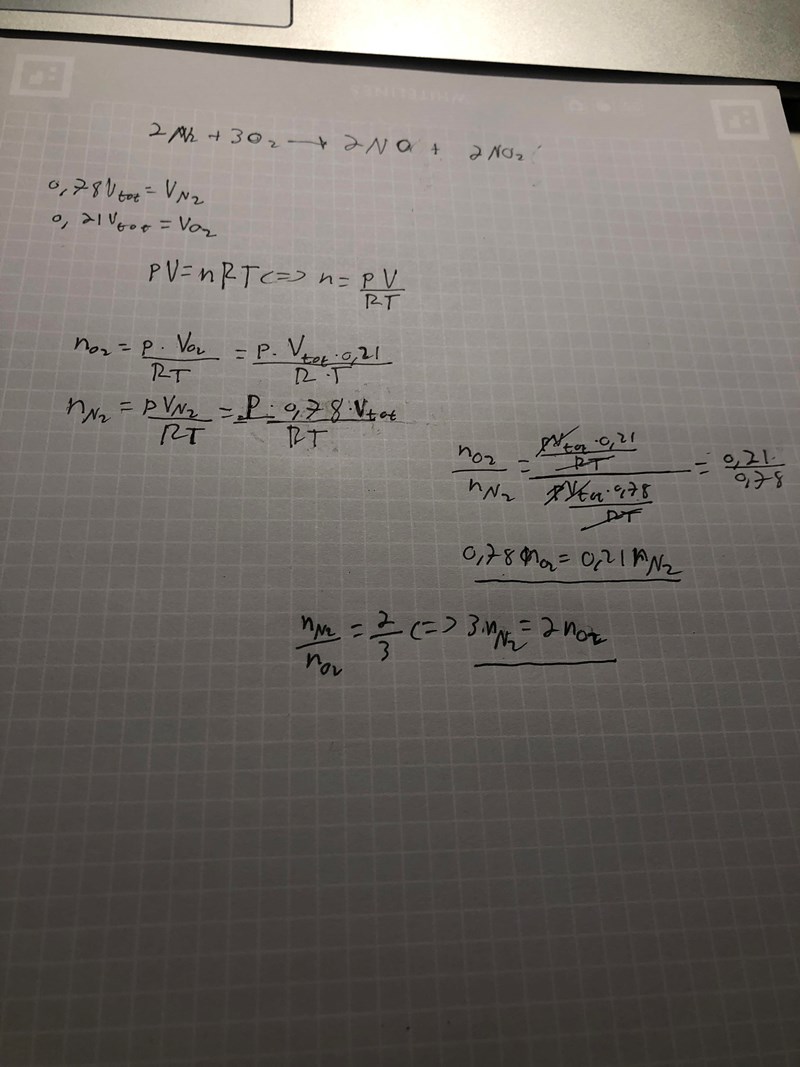 2N₂ + 3O₂ → 2NO + 2NO₂
0,78V_tot = V_N₂
0,21V_tot = V_O₂
pV = nRT <=> n = pV/RT
n_O₂ = p · V_O₂/RT = p · V_tot · 0,21/R · T
n_N₂ = pV_N₂/RT = p · 0,78 · V_tot/RT
n_O₂/n_N₂ = (pV_tot · 0,21/RT)/(pV_tot · 0,78/RT) = 0,21/0,78
0,78n_O₂ = 0,21n_N₂
n_N₂/n_O₂ = 2/3 <=> 3·n_N₂ = 2n_O₂